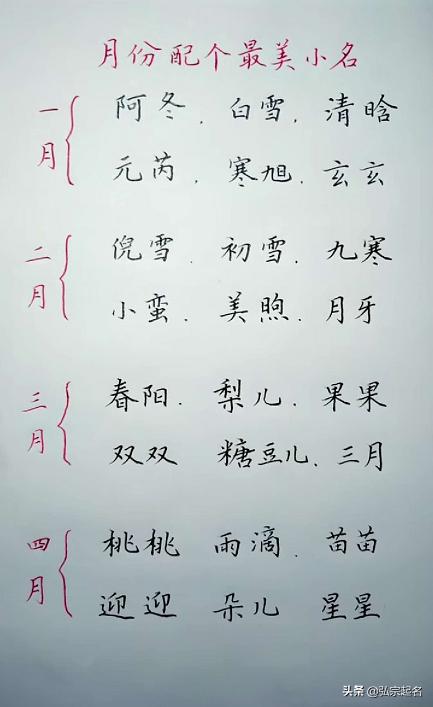 月份配个最美小名
一月
阿冬.白雪.清晗
元芮.寒旭.玄玄
二月
倪雪.初雪.九寒
小蛮.美煦.月牙
三月
春阳.梨儿.果果
双双 糖豆儿.三月
四月
桃桃 雨滴.苗苗
迎迎 朵儿 星星
头条 @弘宗起名